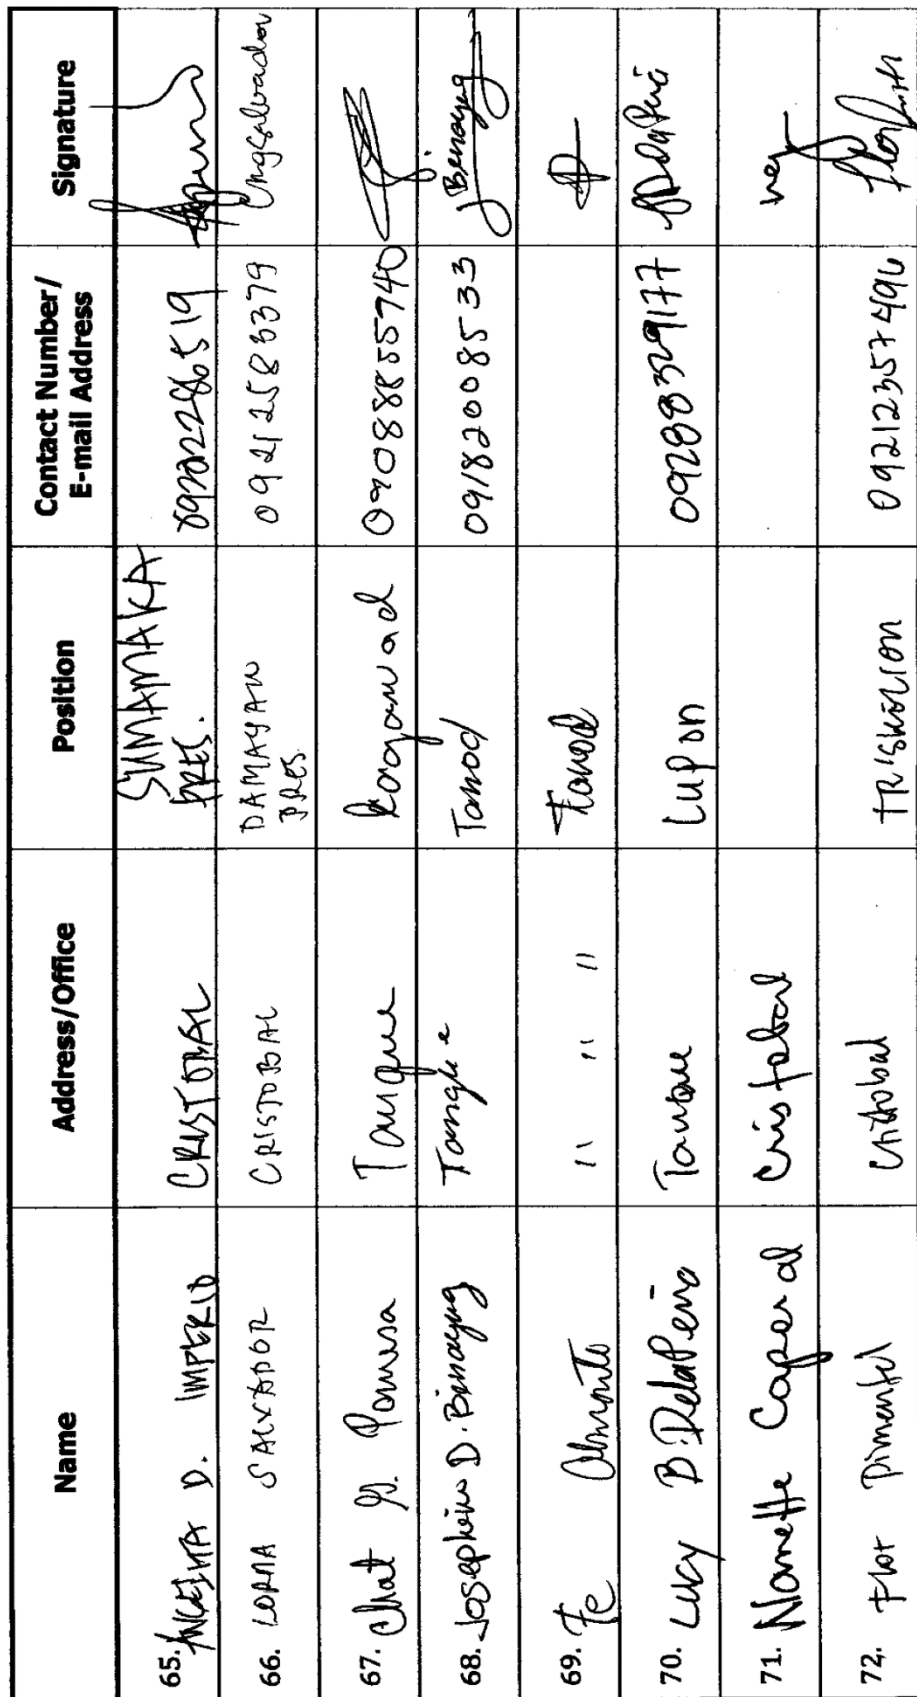 Name Address/Office Position Contact Number/ E-mail Address Signature
65. D. IMPERIO CRISTOBAL SUMAMAKA PRES. 09222286519
66. LORNA SALVADOR CRISTOBAL DAMAYAN PRES. 09212583379 Lngsalvador
67. Chat Tanque Kagawad 09088855740
68. Josephine D. Binayug Tanque Tanod 09182008533 JBinayug
69. Fe Almonte " " " Tanod
70. Lucy B. DelaPeña Lupon 09288329177
71. Nanette Caparal Cristobal
72. Flor Pimentel Cristobal TRISKELION 09212357496